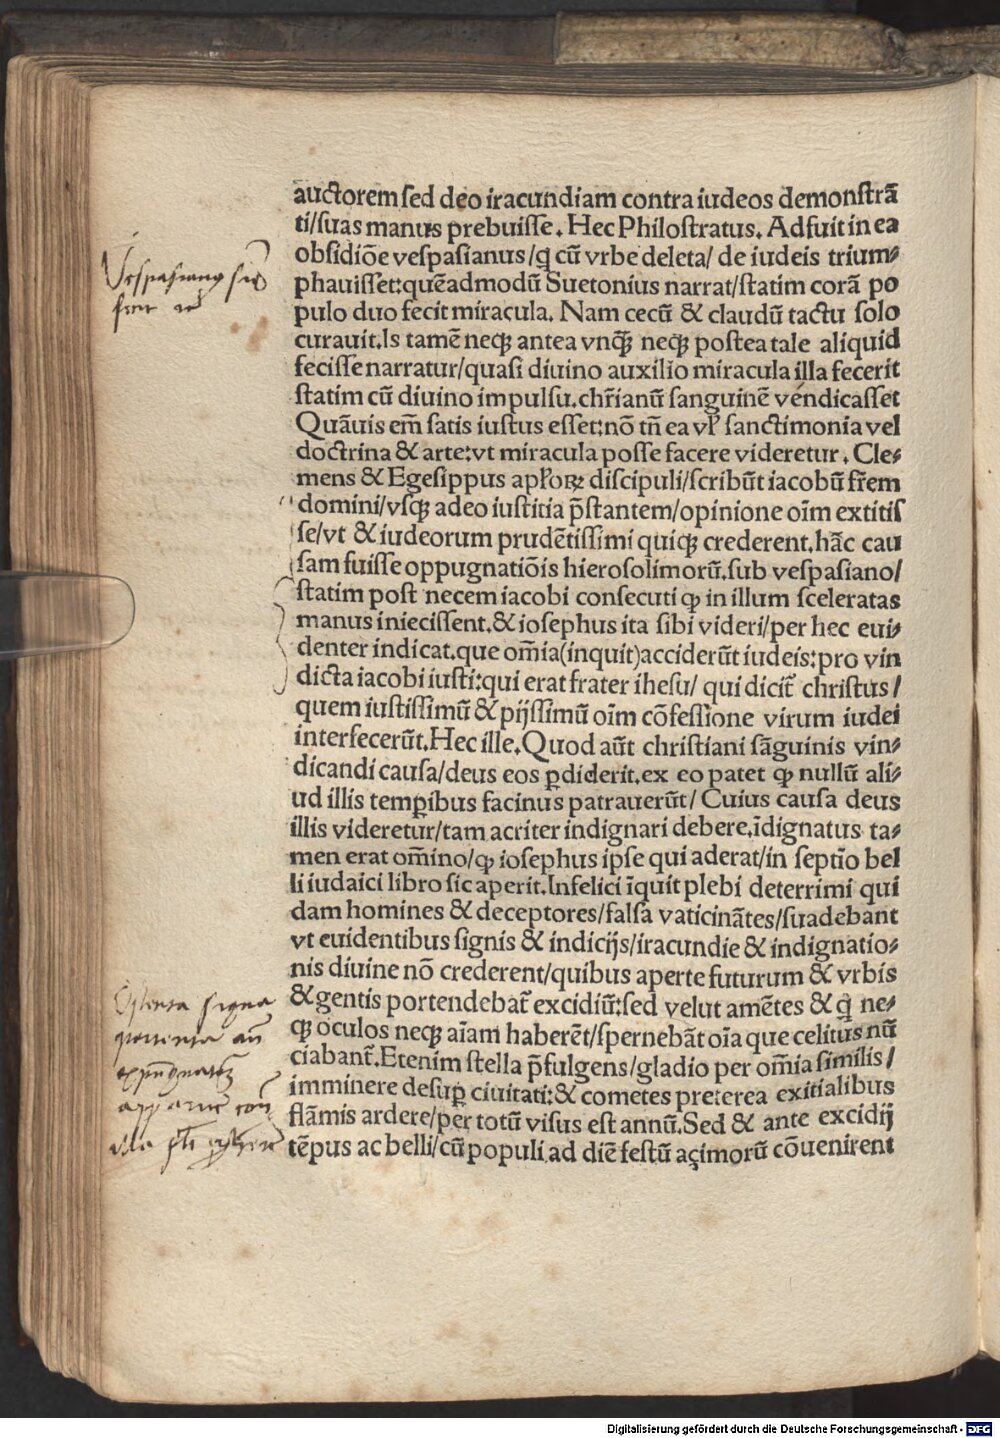 auctorem sed deo iracundiam contra iudeos demonstrã
ti/suas manus prebuisse. Hec Philostratus. Adfuit in ea
obsidiõe vespasianus/q cũ vrbe deleta/ de iudeis trium⸗
phauisset:quẽadmodũ Suetonius narrat/statim corã po
pulo duo fecit miracula. Nam cecũ & claudũ tactu solo
curauit. Is tamẽ neqꝫ antea vnq̃ꝫ neqꝫ postea tale aliquid
fecisse narratur/quasi diuino auxilio miracula illa fecerit
statim cũ diuino impulsu.chr̃ianũ sanguinẽ vendicasset
Quãuis em̃ satis iustus esset:nõ tñ ea vł sanctimonia vel
doctrina & arte:vt miracula posse facere videretur. Cle⸗
mens & Egesippus apłoꝝ discipuli/scribũt iacobũ fr̃em
domini/vsqꝫ adeo iustitia p̃stantem/opinione oĩm extitis
se/vt & iudeorum prudẽtissimi quiqꝫ crederent.hãc cau
sam fuisse oppugnatiõis hierosolimorũ.sub vespasiano/
statim post necem iacobi consecuti ꝙ in illum sceleratas
manus iniecissent.& iosephus ita sibi videri/per hec eui⸗
denter indicat.que om̃ia(inquit)acciderũt iudeis:pro vin
dicta iacobi iusti:qui erat frater ihesu/ qui dicit̃ christus/
quem iustissimũ & pijssimũ oĩm cõfessione virum iudei
interfecerũt. Hec ille. Quod aũt christiani sãguinis vin⸗
dicandi causa/deus eos ꝑdiderit.ex eo patet ꝙ nullũ ali⸗
ud illis temꝑibus facinus patrauerũt/ Cuius causa deus
illis videretur/tam acriter indignari debere.ĩdignatus ta⸗
men erat om̃ino/ꝙ iosephus ipse qui aderat/in septĩo bel
li iudaici libro sic aperit. Infelici ĩquit plebi deterrimi qui
dam homines & deceptores/falsa vaticinãtes/suadebant
vt euidentibus signis & indicijs/iracundie & indignatio⸗
nis diuine nõ crederent/quibus aperte futurum & vrbis
& gentis portendebat̃ excidiũ:sed velut amẽtes & q̃ ne⸗
qꝫ oculos neqꝫ aĩam haberẽt/spernebãt oĩa que celitus nũ
ciabant̃. Etenim stella p̃fulgens/gladio per om̃ia similis/
imminere desuꝑ ciuitati:& cometes preterea exitialibus
flãmis ardere/per totũ visus est annũ. Sed & ante excidij
tẽpus ac belli/cũ populi ad diẽ festũ açimorũ cõuenirent
Ostenta signa
portenta
Digitalisierung gefördert durch die Deutsche Forschungsgemeinschaft - DFG